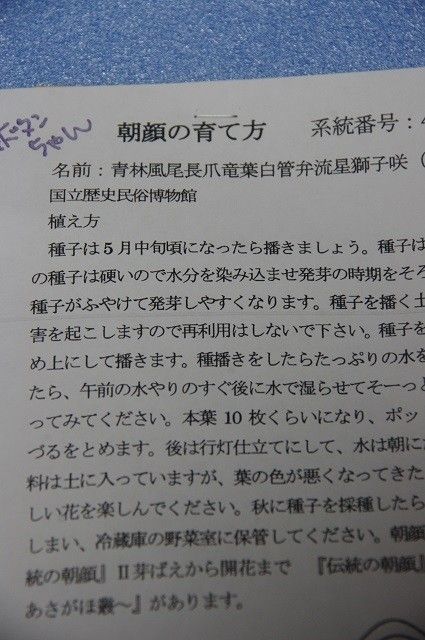 ボタン
ちゃん
朝顔の育て方
系統番号：4
名前：青林風尾長爪竜葉白管弁流星獅子咲（
国立歴史民俗博物館
植え方
種子は5月中旬頃になったら播きましょう。種子は
の種子は硬いので水分を染み込ませ発芽の時期をそろ
種子がふやけて発芽しやすくなります。種子を播く土
害を起こしますので再利用はしないで下さい。種子を
め上にして播きます。種播きをしたらたっぷりの水を
たら、午前の水やりのすぐ後に水で湿らせてそーっと
ってみてください。本葉10枚くらいになり、ポッ
づるをとめます。後は行灯仕立てにして、水は朝に
料は土に入っていますが、葉の色が悪くなってきた
しい花を楽しんでください。秋に種子を採種したら
しまい、冷蔵庫の野菜室に保管してください。朝顔
統の朝顔』Ⅱ芽ばえから開花まで　『伝統の朝顔』
あさがほ叢～』があります。